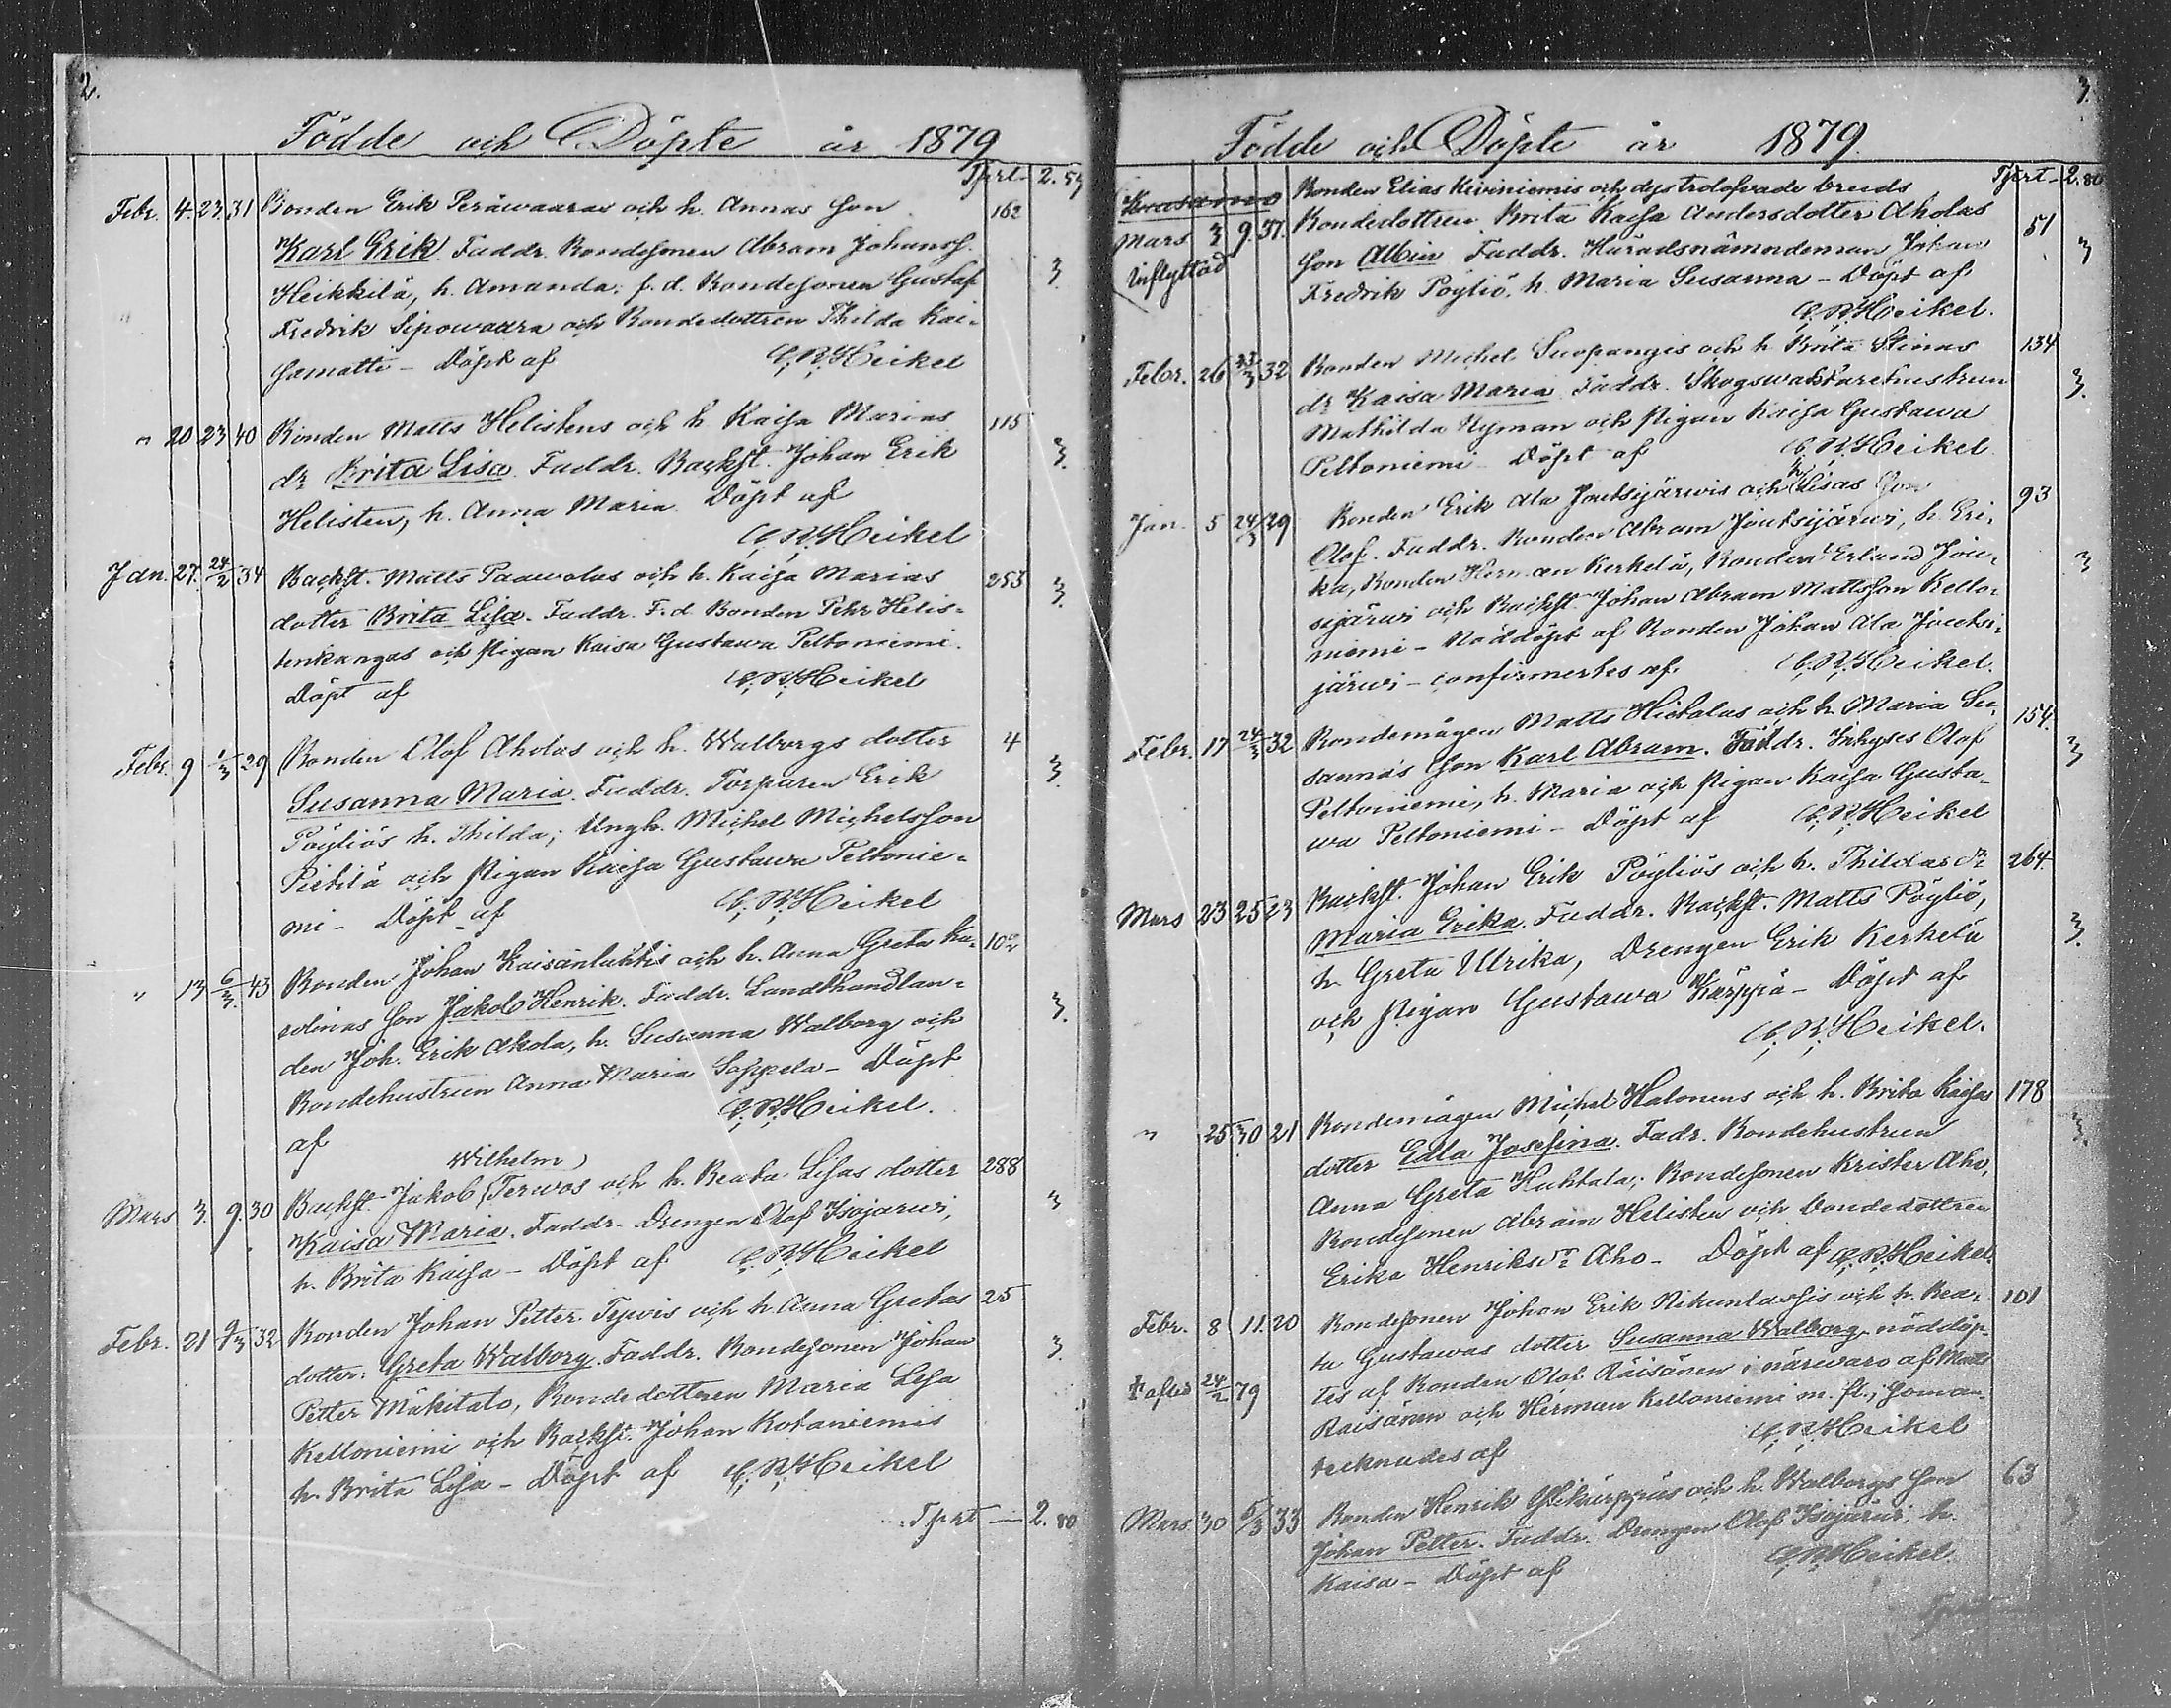 2.
Födde och Döpte år 1879
Tprt. 2.
Febr. 4. 23. 31 Bonden Erik Peräwaaras och h. Annas son 162
Karl Erik. Faddr. Bondesonen Abram Johanss.
Heikkilä, h. Amanda; f. d. Bondesonen Gustaf 3.
Fredrik Sipowaara och Bondedottren Thilda Kai-
samatti - Döpt af C. R. Heikel
" 20 23 40 Bonden Matts Helistens och h. Kaisa Marias 115
dr Brita Lisa. Faddr. Backst. Johan Erik 3.
Helisten, h. Anna Maria. Döpt af
C. R. Heikel
Jan. 27. 24/2 34 Backst. Matts Paawolas och h. Kaisa Marias 253
dotter Brita Lisa. Faddr. F. d. Bonden Pehr Helis- 3.
tenkangas och pigan Kaisa Gustawa Peltoniemi.
Döpt af C. R. Heikel
Febr. 9 1/3 29 Bonden Olof Aholas och h. Walborgs dotter 4
Susanna Maria. Faddr. Torparen Erik 3.
Pöyliös h. Thilda; Ungk. Michel Michelsson
Pietilä och pigan Kaisa Gustawa Peltonie-
mi - Döpt af C. R. Heikel
" 13 6/3. 43 Bonden Johan Kaisanlahtis och h. Anna Greta Ka-
rolinas son Jakob Henrik. Faddr. Landthandlan-
den Joh. Erik Akola, h. Susanna Walborg och 3.
Bondehustrun Anna Maria Soppela - Döpt
af C. R. Heikel.
Wilhelm
Mars 3. 9. 30 Backst. Jakob Terwos och h. Beata Lisas dotter 288
Kaisa Maria. Faddr. Drengen Olof Isojärwi, 3
h. Brita Kaisa - Döpt af C. R. Heikel
Febr. 21 9/3 32 Bonden Johan Petter Typpis och h. Anna Gretas 25
dotter: Greta Walborg. Faddr. Bondesonen Johan 3.
Petter Mäkitalo, Bondedottren Maria Lisa
Kelloniemi och Backst. Johan Kotaniemis
h. Brita Lisa - Döpt af C. R. Heikel
Tprt - 2. 80
3.
Födde och Döpte år 1879.
Tprt - 2. 80
Kuusamo Bonden Elias Kiviniemis och dess trolofvade bruds
Mars 3 9. 37. Bondedottren Brita Kaisa Andersdotter Aholas 51
Inflyttad son Albin Faddr. Häradsnämndeman Johan 3
Fredrik Pöyliö, h. Maria Susanna - Döpt af
C. R. Heikel.
Febr. 26 23/3 32 Bonden Michel Suopangis och h. Brita Stinas 134
dr Kaisa Maria. Faddr. Skogswaktarehustrun 3.
Mathilda Nyman och pigan Kaisa Gustawa
Peltoniemi - Döpt af C. R. Heikel.
Jan. 5 24/3 29 Bonden Erik Ala Joutsijärwis och h. Lisas son 93
Olof. Faddr. Bonden Abram Joutsijärwi, h. Eri-
ka, Bonden Herman Kerkelä, Bonden Erland Jou- 3
sijärwi och Backst. Johan Abram Mattsson Kello-
niemi - Nöddöpt af Bonden Johan Ala Joutsi-
järwi - confirmertes af C. R. Heikel.
Febr. 17 24/3 32 Bondemågen Matts Hietalas och h. Maria Su- 154.
sannas son Karl Abram. Faddr. Inhyses Olof 3
Peltoniemi, h. Maria och pigan Kaisa Gusta-
wa Peltoniemi - Döpt af C. R. Heikel
Mars 23 25 23 Backst. Johan Erik Pöyliös och h. Thildas dr 264.
Maria Erika. Faddr. Backst. Matts Pöyliö, 3.
h. Greta Ulrika, Drengen Erik Kerkelä
och pigan Gustawa Kärppä - Döpt af
C. R. Heikel.
" 25 30 21 Bondemågen Michel Halonens och h. Brita Kaisas 178
dotter Edla Josefina. Fadr. Bondehustrun 3.
Anna Greta Huhtala; Bondesonen Krister Aho,
Bondesonen Abram Helisten och bondedottren
Erika Henriksdr Aho - Döpt af C. R. Heikel.
Febr. 8 11. 20 Bondesonen Johan Erik Nikunlassis och h. Bea- 101
ta Gustawas dotter Susanna Walborg nöddöp-
† afled 24/2 79 tes af Bonden Olof Räisänen i närwaro af Matts
Räisänen och Herman Kelloniemi m. fl.; som an-
tecknades af C. R. Heikel
Mars 30 5/3 33 Bonden Henrik Ylikärppäs och h. Walborgs son 63
Johan Petter. Faddr. Drengen Olof Isojärwi, h. 3
Kaisa - Döpt af C. R. Heikel.